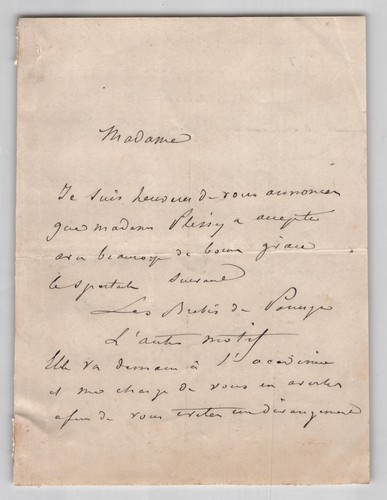 Madame
Je suis heureux de vous annoncer
que madame Plessy a accepté
avec beaucoup de bonne grâce
le spectacle suivant
Les Brebis de Panurge
L'autre motif
Elle va demain à l'académie
et me charge de vous en avertir
afin de vous éviter un dérangement